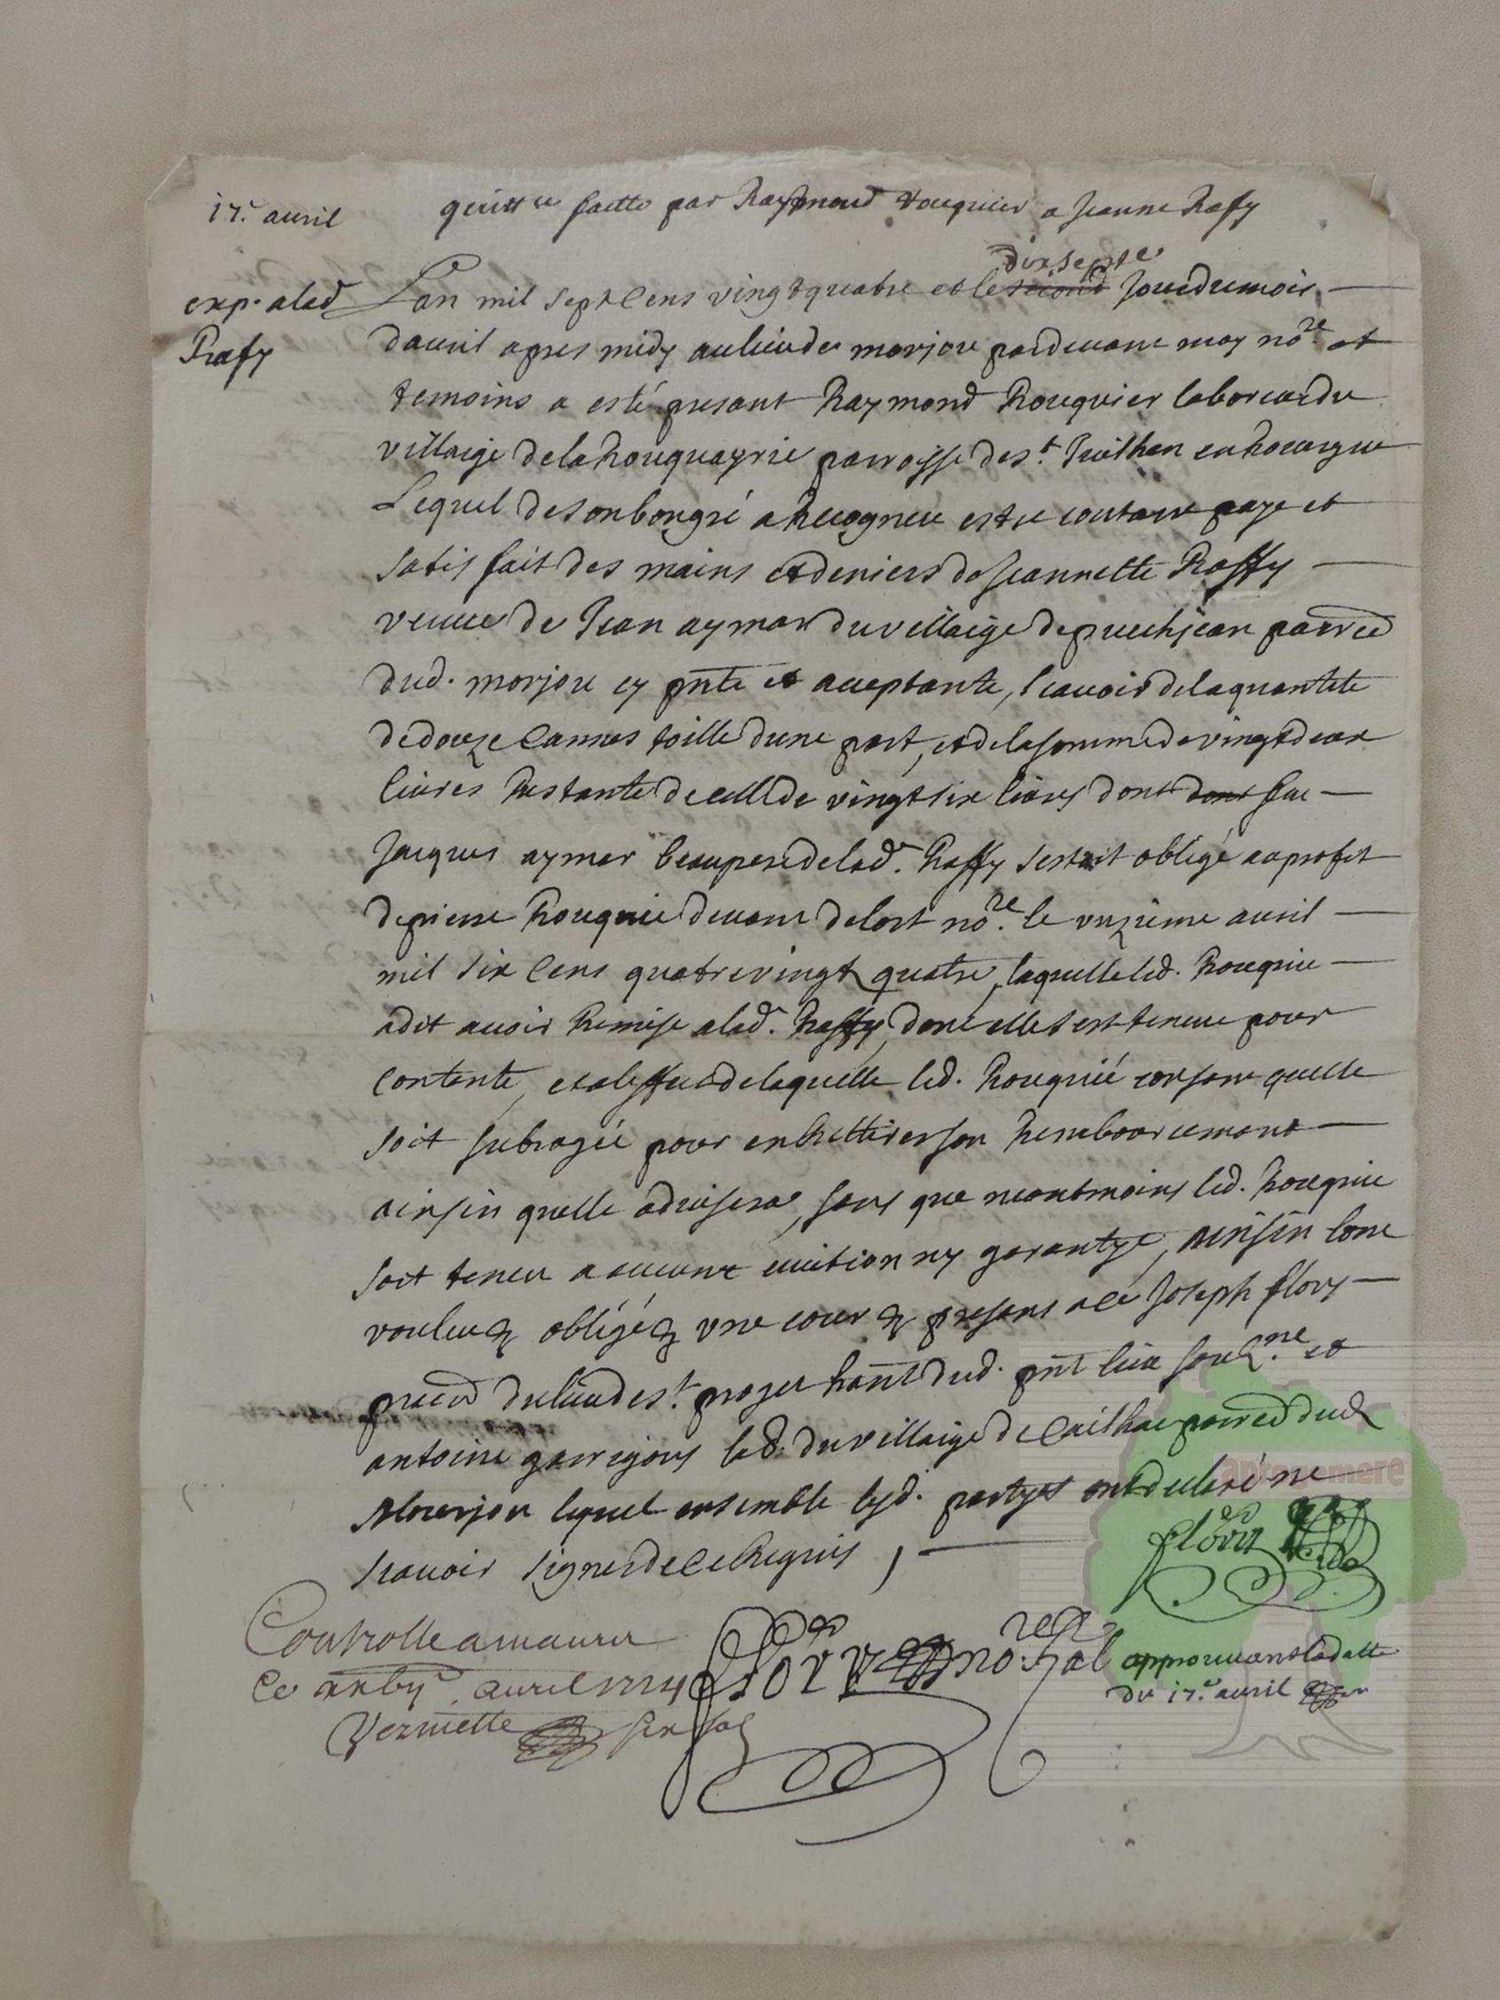 17.e auril
quittce faitte par Raymond Rouquier a Jeanne Raffy
exp. a lad
Raffy
dix septe
Lan mil sept cens vingt quatre et le second jour du mois
dauril apres midy au lieu de morjou pardeuant moy no.re et
temoins a esté presant Raymond Rouquier laboreur du
villaige de la Rouquayrie parroisse de s.t Juilhen en Rouergue
Lequel de son bon gré a Recogneu estre contant paye et
satisfait des mains et deniers de Jeannette Raffy
veuue de Jean aymar du villaige de puechjean parr.e
dud. morjou cy pnte et acceptante, scauoir de la quantité
de douze cannes toille dune part, et de la somme de vingt deux
liures Restante de celle de vingt six liures dont dont feu
Jacques aymar beaupere de lad. Raffy sestoit obligé au profit
de pierre Rouquié deuant delort no.re le unzieme auril
mil six cens quatre vingt quatre, laquelle led. Rouquie
a dit auoir Remise a lad. Raffy, dont elle sest tenue pour
contente, et a leffet de laquelle led. Rouquié consent quelle
soit subrogée pour en Rettirer son Remboorcement
ainsin quelle aduisera, sans que neantmoins led. Rouquie
soit teneu a aucune euiction ny garantye, ainsin lont
voulu & obligé & une cour & presens a ce Joseph flory
du lieu de s.t projet hant dud. pnt lieu soub.ne et
antoine garrigous lab. du villaige de Cailhac parr.e dud
Mourjou lequel ensemble lesd. partyes ont declaré ne
scauoir signer de ce Requis,
flory
Controllé a maurs
ce auril 1724
six sols
flory no.re Ral
approuuant la datte
du 17.e auril